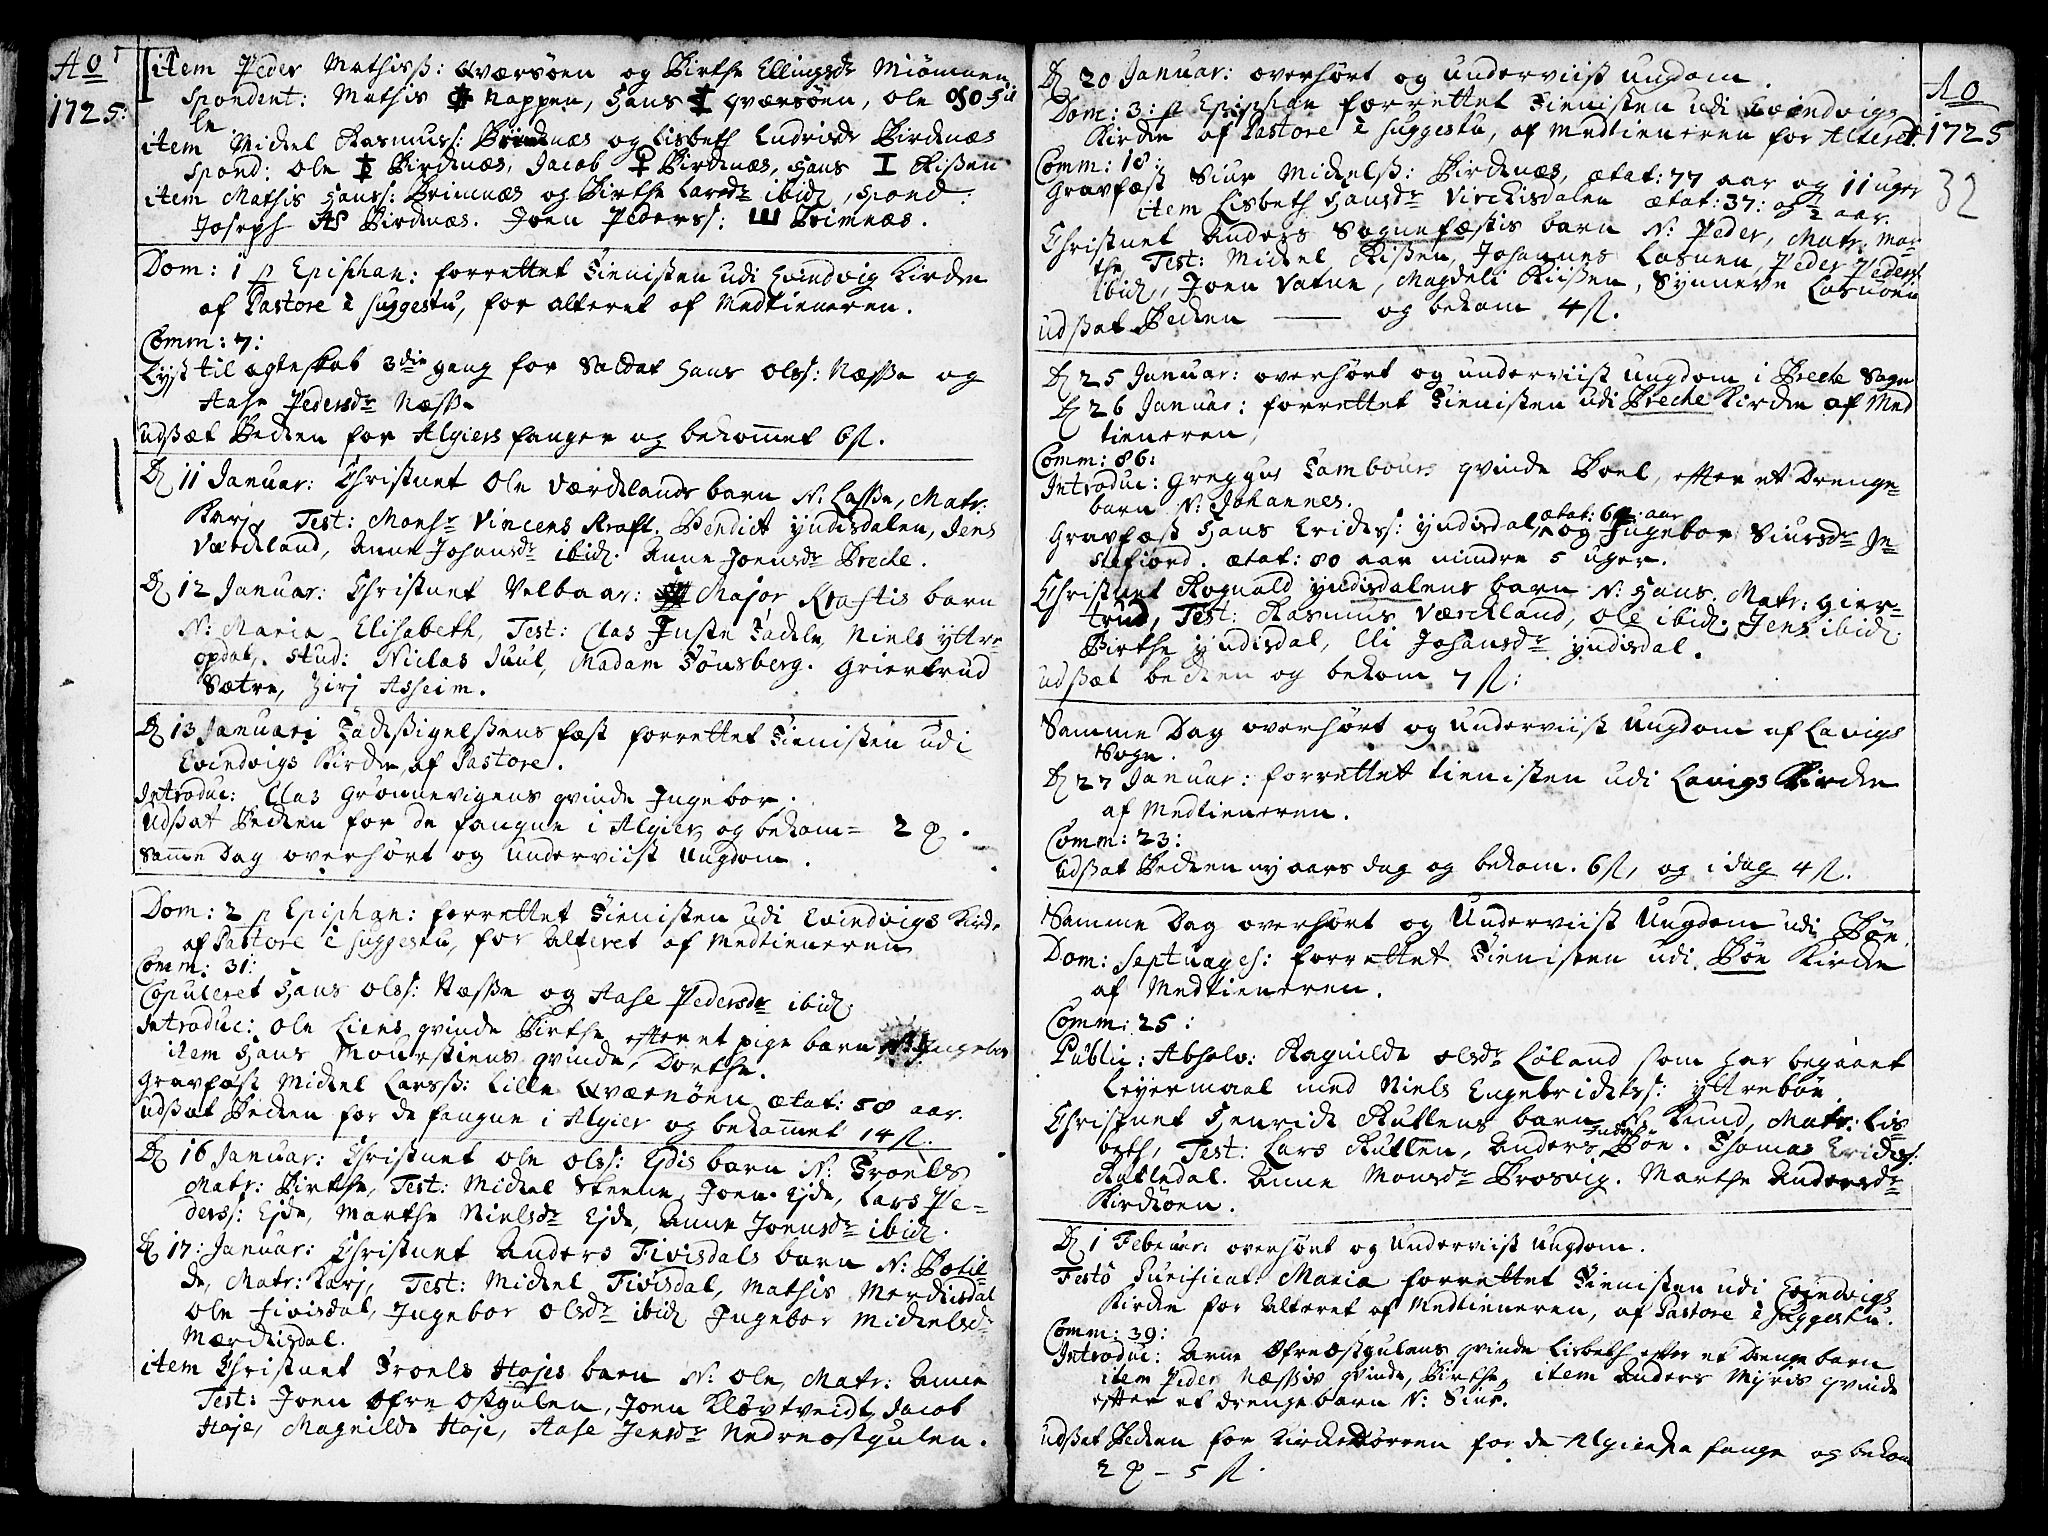 Ao
1725:
item Peder Mathisß: Qværnöen og Birthe Ellingsdr Miömnen
Spondent: Mathis Nappen, Hans Qværnöen, Ole
item Mickel Rasmuss: Birknæs og Lisbeth Endrisdr Birknæs
Spond: Ole Birknæs, Jacob Birknæs, Hans Risßen
item Mathis Hanss: Brimnæs og Birthe Larsdr ibid, Spond:
Joseph AS Birknæs. Joen Pederss: Brimnæs.
Dom: 1 p Epiphan: forrettet Tienisten udi Evindvig Kircke
af Pastore è suggestu, for alteret af Medtieneren.
Comm: 7:
Lyst til ægteskab 3die gang for Saldat Hans Olss: Næsse og
Aase Pedersdr Næsse
udsat Becken for Algiers fanger og bekommet 6 s.
D 11 Januar: Christnet Ole Værcklands barn N: Lasse, Matr:
Kari, Test: Monsr Vincens Kraft. Bendict yndisdalen, Jens
Værckland, Anne Johansdr ibid. Anne Joensdr Brecke.
D 12 Januar: Christnet Velbaar: Major Kraftis barn
N: Maria Elisabeth, Test: Clas Juste Tackle, Niels yttre
opdal, Stud: Niclas Juul, Madam Tönsberg. Griertrud
Sætre, Ziri Asheim.
D 13 Januari Tacksigelsens fest forrettet Tienisten udi
Evindvigs Kircke, af Pastore.
Introduc: Clas Grönnevigens qvinde Ingebor,
udsat Becken for de fangne i Algier, og bekom 2
Samme Dag overhört og underviist Ungdom.
Dom: 2 p Epiphan: forrettet Tienisten udi Evindvigs Kirck.
af Pastore è suggestu, for Alteret af Medtieneren
Comm: 31:
Copuleret Hans Olss: Næsse og Aase Pedersdr ibid.
Introduc: Ole Liens qvinde Birthe, efter et pige barn N: Ingebor
item Hans Mourstiens qvinde, Dorthe.
Gravfæst Mickel Larsß: Lille Qværnöen ætat: 58 aar.
udsat Becken for de fangne i Algier og bekommet 14 s.
D 16 Januar: Christnet Ole Olss: Ejdis barn N: Troels
Matr: Birthe, Test: Mickel Steene, Joen Ejde, Lars Pe-
derss: Ejde, Marthe Nielsdr Ejde, Anne Joensdr ibid.
D 17: Januar: Christnet Anders Tivisdals barn N: Botil-
de, Matr: Kari, Test: Mickel Tivisdal, Mathis Merckisdal
Ole Tivisdal, Ingebor Olsdr ibid Ingebor Mickelsdr
Mærckisdal.
item Christnet Troels Hojes barn N: Ole, Matr: Anne
Test: Joen Öfre Ostgulen, Joen Klövtveidt, Jacob
Hoje, Magnilde Hoje, Aase Jensdr Nedreostgulen.
D 20 Januar: overhört og underviist ungdom.
Dom: 3: p Epiphan forrettet Tienisten udi Evindvigs
Kircke af Pastore è suggestu, af Medtieneren for Alteret.
Ao
1725
32
Comm: 18:
Gravfæst Siur Mickelsß: Birknæs, ætat: 77 aar og 11 uger
item Lisbeth Hansdr Virckisdalen ætat: 37: og ½ aar.
Christnet Anders Sognefæstis barn N: Peder, Matr: Mar-
the, Test: Mickel Risßen, Johannes Losnen, Peder Peders:
ibid, Joen Vatne, Magdeli Riisßen, Synneve Losnöen
udsat Becken — og bekom 4 s.
D 25 Januar: overhört og underviist ungdom i Brecke Sogn
D 26 Januar: forrettet Tienisten udi Brecke Kircke af Med
tieneren,
Comm: 86:
Introduc: Greggus Tambours qvinde Boel, efter et Drenge-
barn N: Johannes.
Gravfæst Hans Ericks: yndisdal, ætat: 64 aar og Ingebor Siursdr In-
stefiord. ætat: 80 aar mindre 5 uger.
Christnet Rognald yndisdalens barn N: Hans, Matr: Gier-
trud, Test: Rasmus Værckland, Ole ibid, Jens ibid.
Birthe yndisdal, Eli Johansdr yndisdal.
udsæt becken og bekom 7 s:
Samme Dag overhört og underviist Ungdom af Lavigs
Sogn.
D 27 Januar: forrettet tienisten udi Lavigs Kircke
af Medtieneren.
Comm: 23:
udsat Becken ny aars dag og bekom. 6 s, og i dag 4 s.
Samme Dag overhört og Underviist Ungdom udi Böe
Dom: Septuages: forrettet Tienisten udi Böe Kircke
af Medtieneren.
Comm: 25:
Public: Absolv: Ragnilde Olsdr Löland som har begaaet
Leyermaal med Niels Engebrickts: yttreböe
Christnet Henrick Rutlens barn N: Knud, Matr: Lis-
beth, Test: Lars Rutlen, Anders Indre Böe. Thomas Ericks:
Rutledal. Anne Monsdr Brosvig. Marthe Andersdr
Kircköen.
D 1 Februar: overhört og underviist ungdom.
Festo Purificat: Mariæ forrettet Tienisten udi Evindvigs
Kircke for Alteret af Medtieneren, af Pastore è suggestu.
Comm: 39:
Introduc: Arne Öfreostgulens qvinde Lisbeth efter et Drenge barn
item Peder Næssis qvinde, Birthe, item Anders Myris qvinde
efter et drengebarn N: Siur.
udsat Becken for Kirckedörren for de Algierske fange og bekom
2 - 5 s.